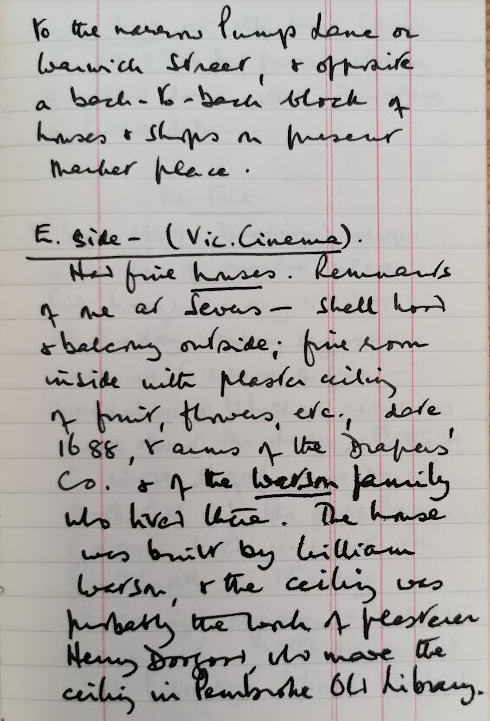 to the narrow Pump Lane or
Warwick Street, & opposite
a back-to-back block of
houses & shops on present
Market place.
E. side - (Vic. Cinema).
Had fine houses. Remnants
of one at Sevens - shell hood
& balcony outside; fine room
inside with plaster ceiling
of fruit, flowers, etc., date
1688, & arms of the Drapers'
Co. & of the Watson family
who lived there. The house
was built by William
Watson, & the ceiling was
probably the work of plasterer
Henry Doogood, who made the
ceiling in Pembroke Old Library.